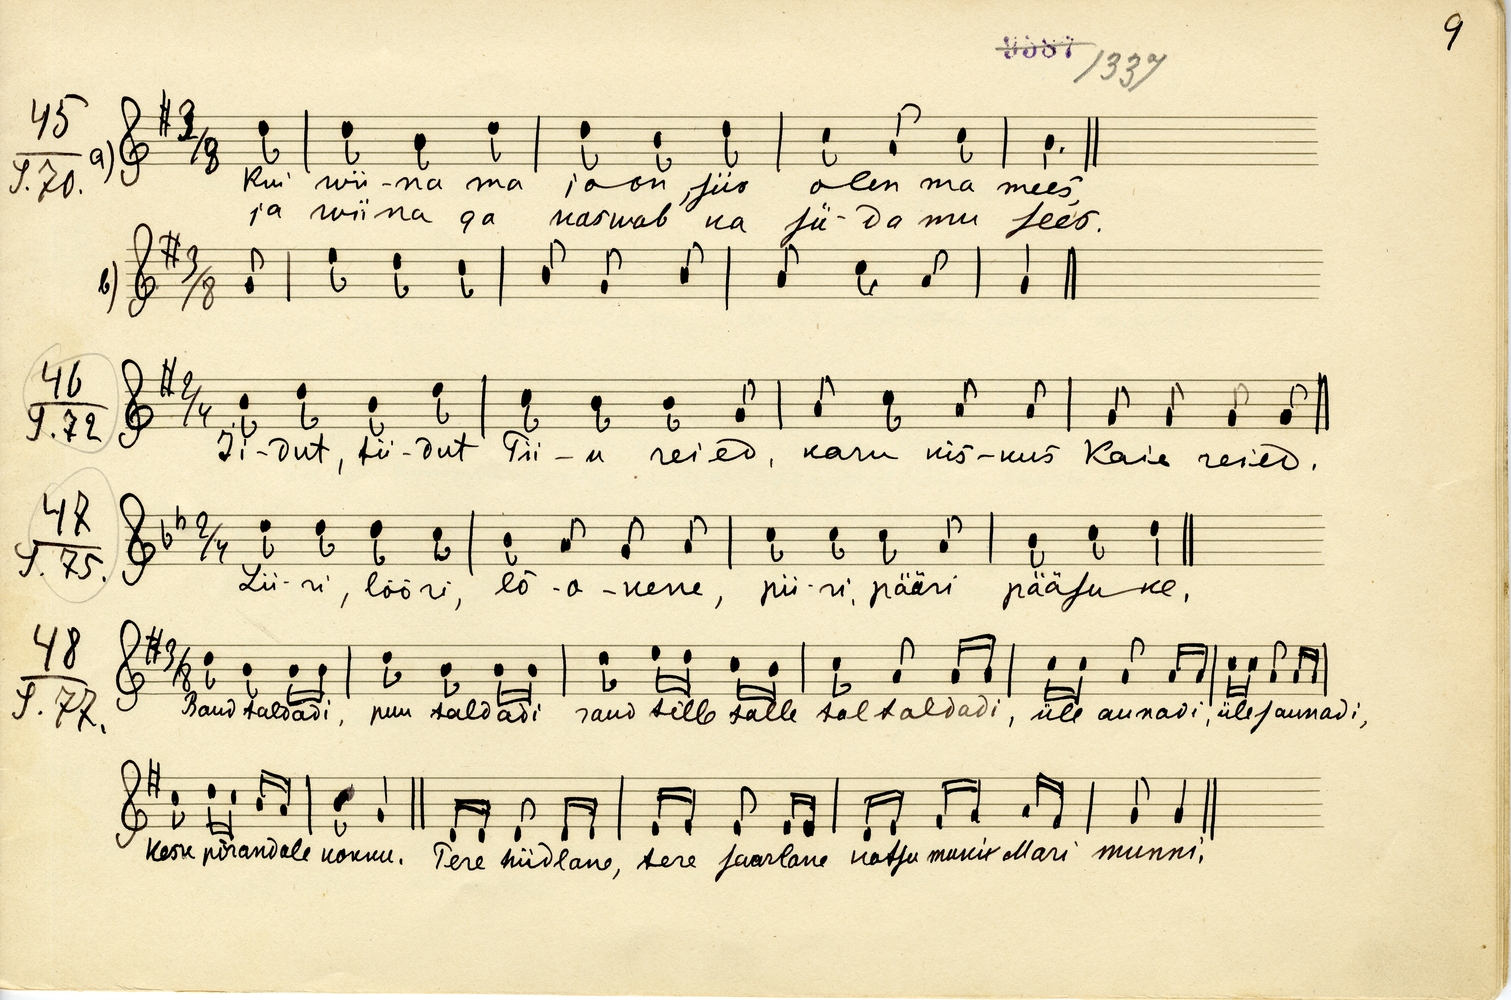 9
9587 1337
45
S. 70.
a) 3/8
Kui wii-na ma joon, siis olen ma mees
ja wiina ga kaswab ka sü-da mu sees.
b) 3/8
46
S. 72
2/4
Ti-dut, tii-dut Tii-u reied, karu kis-kus Kaie reied.
47
S. 75.
2/4
Lii-ri, lõõri, lõ-o-kene, pii-ri, pääri pääsuke.
48
S. 77.
3/8
Raud taldadi, puu taldadi raud tille talle tal taldadi, üle aunadi, üle saunadi,
Kesk põrandale kokku. Tere hiidlane, tere saarlane katsu Mari munni.